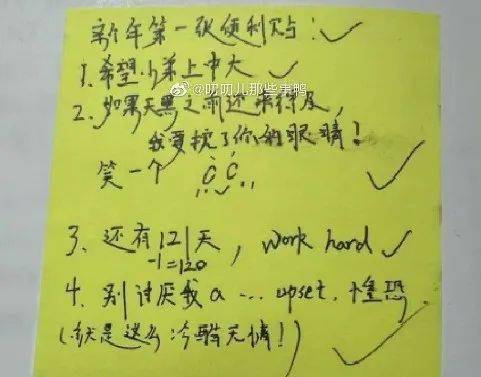 新年第一张便利贴：✓
1、希望小弟上中大 ✓
@叨叨儿那些事鸭
2、如果天黑之前还来得及，
我要挖了你的眼睛！
笑一个 ✓
3、还有121天，work hard ✓
-1=120
4、别讨厌我a … upset. 惶恐
(就是这么冷酷无情！) ✓